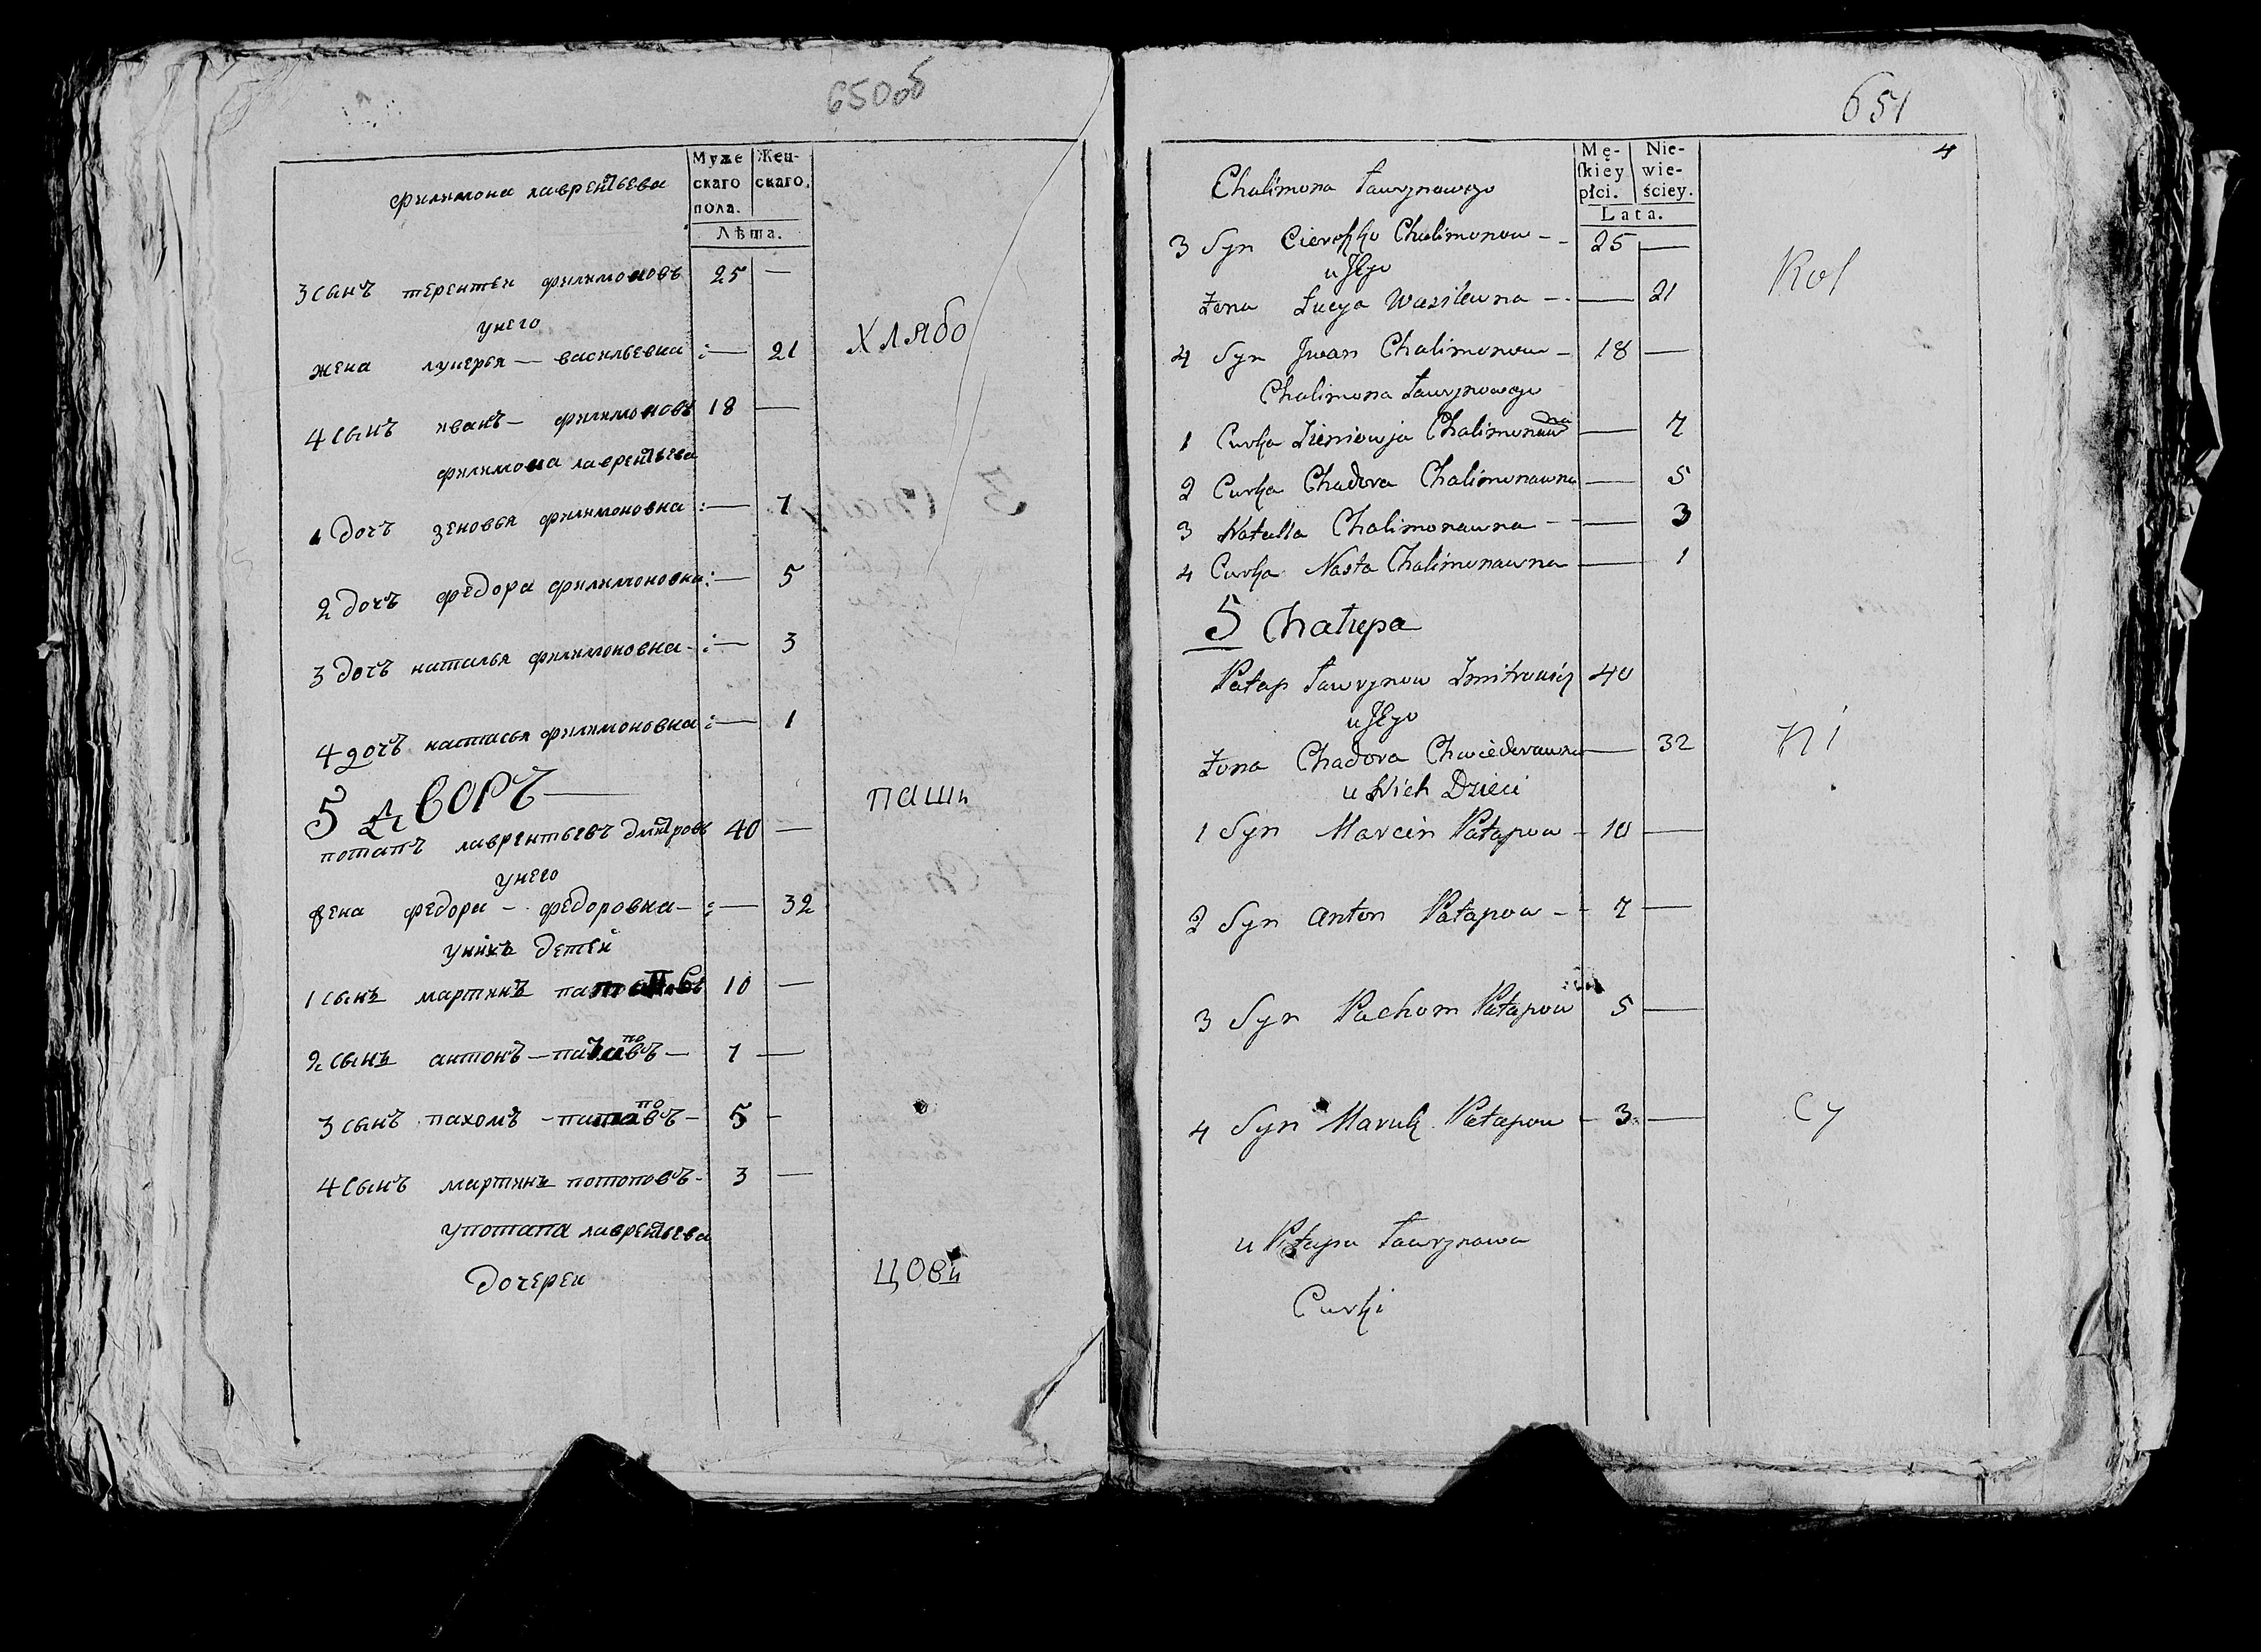 650об
Муже
скаго
пола.
Жен-
скаго.
Лѣта.
филимона лаврентьева
3 сынъ терентеи филимоновъ 25 —
унего
жена лукерья — васильевна :— 21
хлябо
4 сынъ иванъ — филимоновъ 18 —
филимона лаврентьева
1 дочъ зеновья филимоновна :— 7
2 дочъ федора филимоновна :— 5
3 дочъ наталья филимоновна - :— 3
4 дочъ настасья филимоновна :— 1
5 дворъ —
пашь
потапъ лаврентьевъ дмитровъ 40 —
унего
жена федора — федоровна — :— 32
унихъ детеи
1 сынъ мартинъ 10 —
2 сынъ антонъ — — 7 —
3 сынъ пахомъ — — 5 -
4 сынъ мартинъ потоповъ - 3 —
употапа лаврентьева
дочереи
цовъ
651
4
Mę-
ſkiey
płci.
Nie-
wie-
ściey.
Lata.
Chalimona Ławrynowego
3 Syn Ciereszko Chalimonow - - 25 —
u Jego
Żona Łucya Wasilewna - - — 21
Kol
4 Syn Jwan Chalimonow - 18 —
Chalimona Ławrynowego
1 Curka Zieniowja Chalimonawna — 7
2 Curka Chadora Chalimonawna — 5
3 Natalla Chalimonawna - - — 3
4 Curka Nasta Chalimonawna — 1
5 Chałupa
Patap Ławrynow Zmitrowicz 40
u Jego
Żona Chadora Chwiedorawna — 32
ni
u Nich Dzieci
1 Syn Marcin Patapow - 10 —
2 Syn Anton Patapow - - 7 —
3 Syn Pachom Patapow 5 —
4 Syn Patapow - 3 —
cy
u Patapa Ławrynowa
Curki